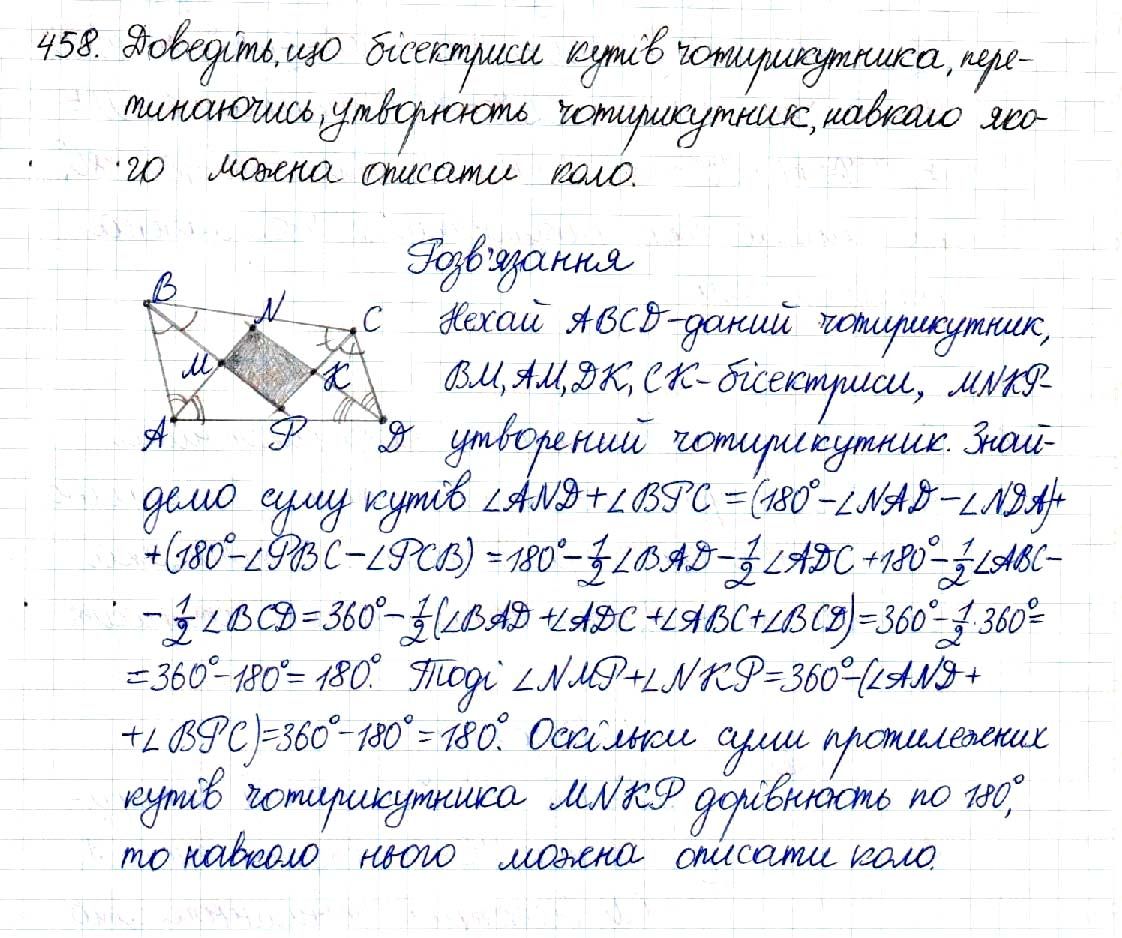 458. Доведіть, що бісектриси кутів чотирикутника, пере-
тинаючись, утворюють чотирикутник, навколо яко-
го можна описати коло.
Розв'язання
B N C
M K
A P D
Нехай ABCD-даний чотирикутник,
BM, AM, DK, CK-бісектриси, MNKP-
утворений чотирикутник. Знай-
демо суму кутів ∠AND+∠BPC=(180°-∠NAD-∠NDA)+
+(180°-∠PBC-∠PCB)=180°-1/2∠BAD-1/2∠ADC+180°-1/2∠ABC-
-1/2∠BCD=360°-1/2(∠BAD+∠ADC+∠ABC+∠BCD)=360°-1/2·360°=
=360°-180°=180°. Тоді ∠NMP+∠NKP=360°-(∠AND+
+∠BPC)=360°-180°=180°. Оскільки суми протилежних
кутів чотирикутника MNKP дорівнюють по 180°,
то навколо нього можна описати коло.